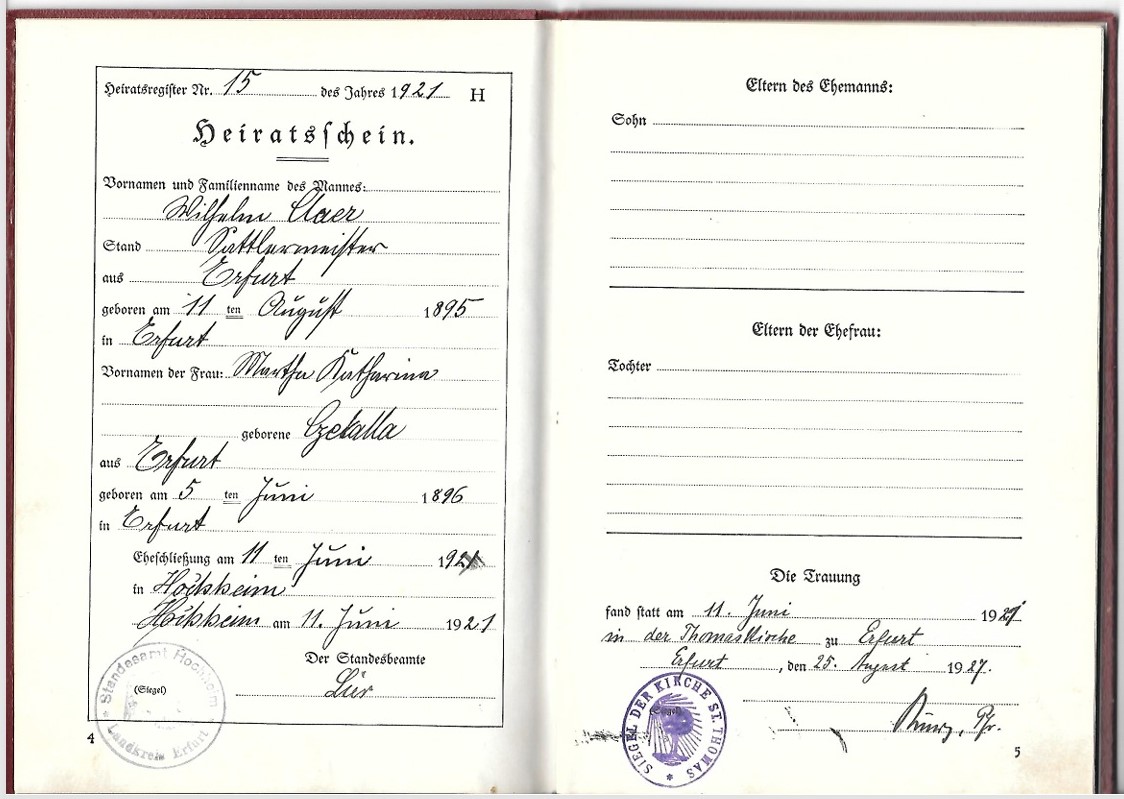 Heiratsregister Nr. 15 des Jahres 1921 H
Heiratsschein.
Vornamen und Familienname des Mannes:
Wilhelm Claer
Stand Sattlermeister
aus Erfurt
geboren am 11 ten August 1895
in Erfurt
Vornamen der Frau: Martha Katharina
geborene Czekalla
aus Erfurt
geboren am 5 ten Juni 1896
in Erfurt
Eheschließung am 11 ten Juni 1921
in Hochheim
Hochheim am 11. Juni 1921
Der Standesbeamte
(Siegel)
Standesamt Hochheim
Landkreis Erfurt
4
Eltern des Ehemanns:
Sohn
Eltern der Ehefrau:
Tochter
Die Trauung
fand statt am 11. Juni 1921
in der Thomaskirche zu Erfurt
Erfurt, den 25. August 1927.
(Siegel)
SIEGEL DER KIRCHE ST. THOMAS
Kurz, Pfr.
5